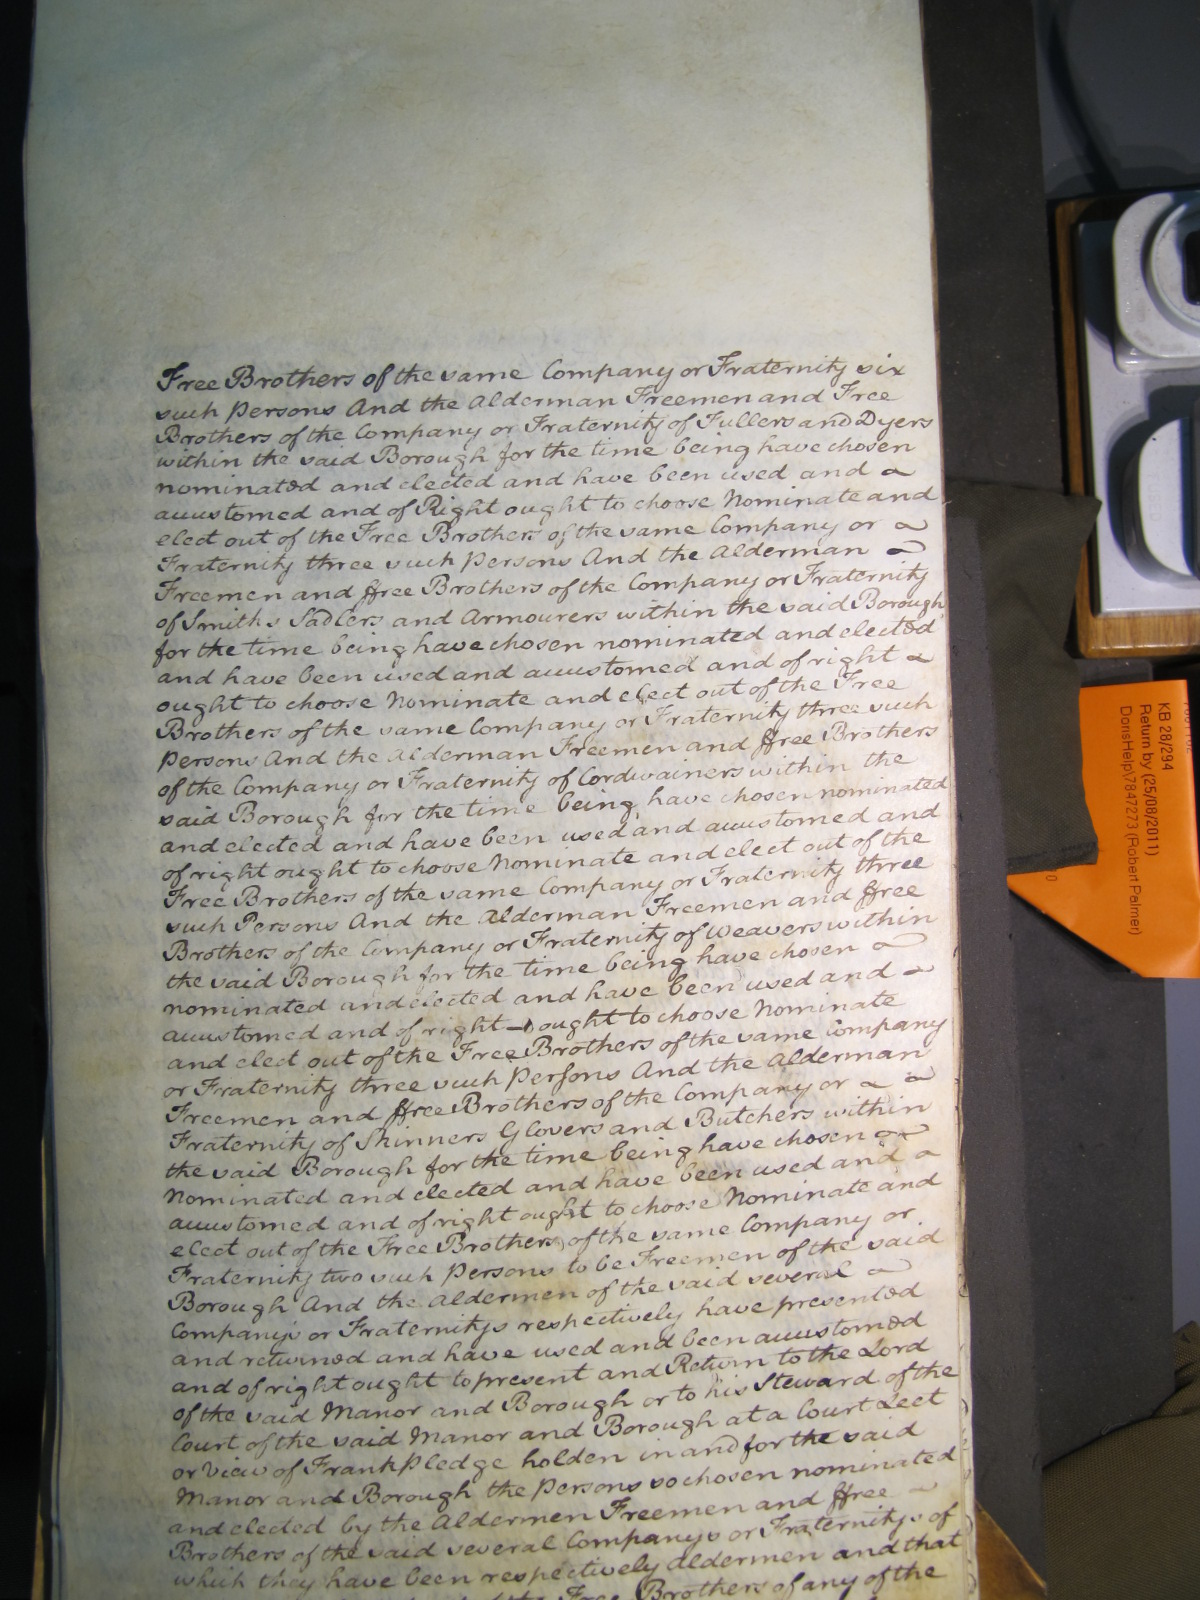 Free Brothers of the same Company or Fraternity six
such Persons And the Alderman Freemen and Free
Brothers of the Company or Fraternity of Fullers and Dyers
within the said Borough for the time being have chosen
nominated and elected and have been used and
accustomed and of Right ought to choose Nominate and
elect out of the Free Brothers of the same Company or
Fraternity three such Persons And the Alderman
Freemen and ffree Brothers of the Company or Fraternity
of Smiths Sadlers and Armourers within the said Borough
for the time being have chosen nominated and elected
and have been used and accustomed and of right
ought to choose Nominate and elect out of the Free
Brothers of the same Company or Fraternity three such
Persons And the Alderman Freemen and ffree Brothers
of the Company or Fraternity of Cordwainers within the
said Borough for the time being have chosen nominated
and elected and have been used and accustomed and
of right ought to choose Nominate and elect out of the
Free Brothers of the same Company or Fraternity three
such Persons And the Alderman Freemen and ffree
Brothers of the Company or Fraternity of Weavers within
the said Borough for the time being have chosen
nominated and elected and have been used and
accustomed and of right ought to choose Nominate
and elect out of the Free Brothers of the same Company
or Fraternity three such Persons And the Alderman
Freemen and ffree Brothers of the Company or
Fraternity of Skinners Glovers and Butchers within
the said Borough for the time being have chosen
Nominated and elected and have been used and
accustomed and of right ought to choose Nominate and
elect out of the Free Brothers of the same Company or
Fraternity two such Persons to be Freemen of the said
Borough And the Aldermen of the said several
Companys or Fraternitys respectively have presented
and returned and have used and been accustomed
and of right ought to present and Return to the Lord
of the said Manor and Borough or to his Steward of the
Court of the said Manor and Borough at a Court Leet
or View of Frankpledge holden in and for the said
Manor and Borough the Persons so chosen nominated
and elected by the Aldermen Freemen and ffree
Brothers of the said several Companys or Fraternitys of
which they have been respectively Aldermen and that
the Free Brothers of any of the
KB 28/294
Return by (25/08/2011)
DorisHelp\7847273 (Robert Palmer)